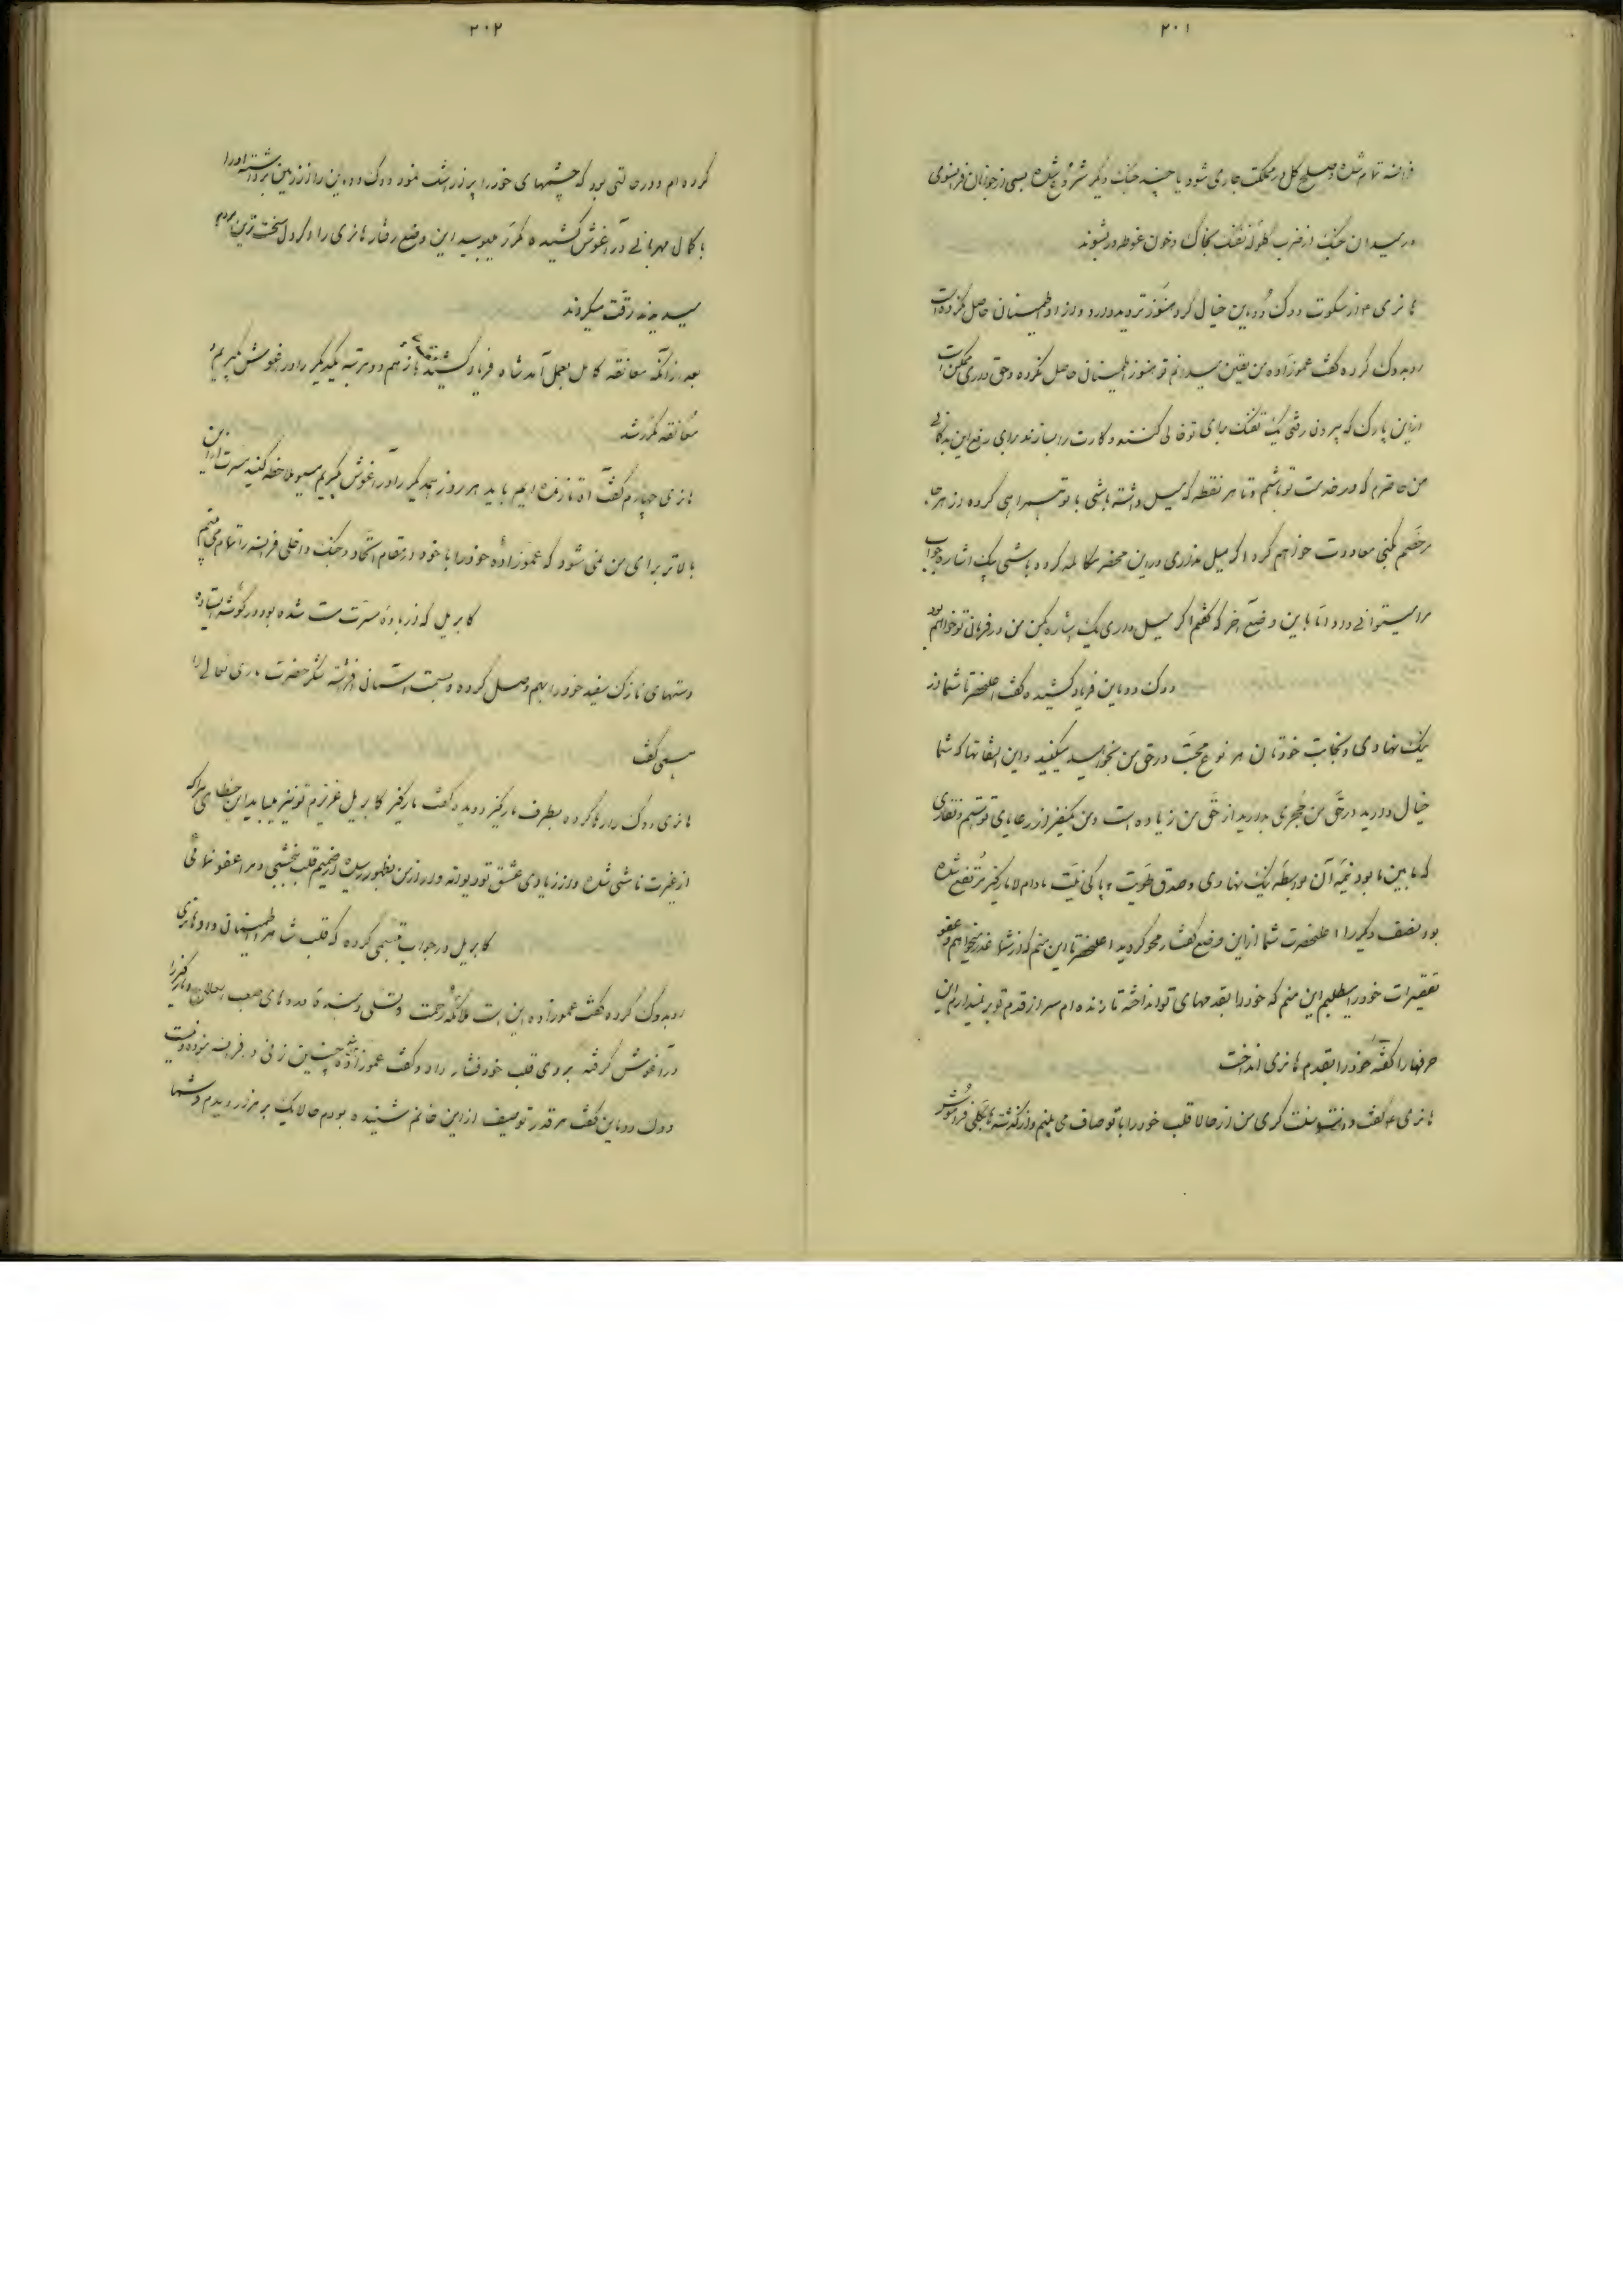 ۲۰۱
فرانسه تمام شده و صلح کل در مملکت جاری شود یا چند جنگ دیگر شروع شده بسی از جوانان فرانسوی
در میدان جنگ از ضرب گلوله تفنگ بخاک و خون غوطه ور شوند
هانری ۴ از سکوت دوک دوماین خیال کرد هنوز تردید دارد و از او اطمینان حاصل نکرده است
رو بدوک کرده گفت عموزاده من یقین میدانم تو هنوز اطمینان حاصل نکرده و حق داری ممکن است
از این پارک که بیرون رفتی یک تفنگ برای تو خالی کنند و کارت را بسازند برای رفع این بدگمانی
من حاضرم که در خدمت تو باشم و تا هر نقطه که میل داشته باشی با تو همراهی کرده از هر جا
مرخصم کنی معاودت خواهم کرد اگر میل نداری در این محضر مکالمه کرده باشی بیک اشاره جواب
مرا میتوانی داد اما باین وضع آخر که گفتم اگر میل داری یک اشاره بکن من در فرمان تو خواهم بود
دوک دوماین فریاد کشیده گفت اعلیحضرتا شما از
نیک نهادی و نجابت خودتان هر نوع محبت در حق من بخواهید میکنید و این التفاتها که شما
خیال دارید در حق من مجری بدارید از حق من زیاده است و من یکنفر از رعایای تو هستم و نقاری
که مابین ما بود نیمه آن بواسطه نیک نهادی و صدق طویت و پاکی نیت مادام لامارکیز مرتفع شده
بود نصف دیگر را اعلیحضرت شما از این وضع گفتار محو کردید اعلیحضرتا این منم که از شما عذر میخواهم و عفو
تقصیرات خود را میطلبم این منم که خود را بقدمهای تو انداخته تا زنده ام سر از قدم تو بر نمیدارم این
حرفها را گفته خود را بقدم هانری انداخت
هانری ۴ گفت من از حالا قلب خود را با تو صاف می بینم و از گذشته ها بکلی فراموش
۲۰۲
کرده ام و در حالتی بود که چشمهای خود را پر از اشک نمود دوک دومین را از زمین برداشته او را
با کمال مهربانی در آغوش کشیده مکرر میبوسید این وضع رفتار هانری را هر که دل سخت ترین مردم
میدیدند رقت میکردند
بعد از آنکه معانقه کامل بعمل آمد شاه فریاد کشید باز هم دو مرتبه یکدیگر را در آغوش بگیریم
معانقه مکرر شد
هانری چهارم گفت تا زنده ایم باید هر روز همدیگر را در آغوش بگیریم مسیو ملاحظه کنید مسرت از این
بالاتر برای من نمی شود که عموزاده خود را با خود در مقام اتحاد و جنگ داخلی فرانسه را تمام می بینم
کابریل که از باده مسرت مست شده بود در گوشه ایستاده
دستهای نازک سفید خود را بهم وصل کرده و بسمت آسمان افراشته شکر حضرت باری تعالی را
همی گفت
هانری دوک را رها کرده بطرف مارکیز دوید و گفت مارکیز کابریل عزیزم تو نیز میباید این خطای مرا که
از غیرت ناشی شده و از زیادی عشق تو دیوانه وار از من بظهور رسیده از صمیم قلب ببخشی و مرا عفو نمائی
کابریل در جواب تبسمی کرده که قلب شاه را اطمینان داد هانری
رو بدوک کرده گفت عموزاده این است ملائکه رحمت و تسلی دهنده دردهای صعب العلاج و مارکیز را
در آغوش گرفته بروی قلب خود فشار داد و گفت عموزاده چنین زنی در فرانسه نبوده و نیست
دوک دوماین گفت هر قدر توصیف از این خانم شنیده بودم حالا یک بر هزار دیدم و شما